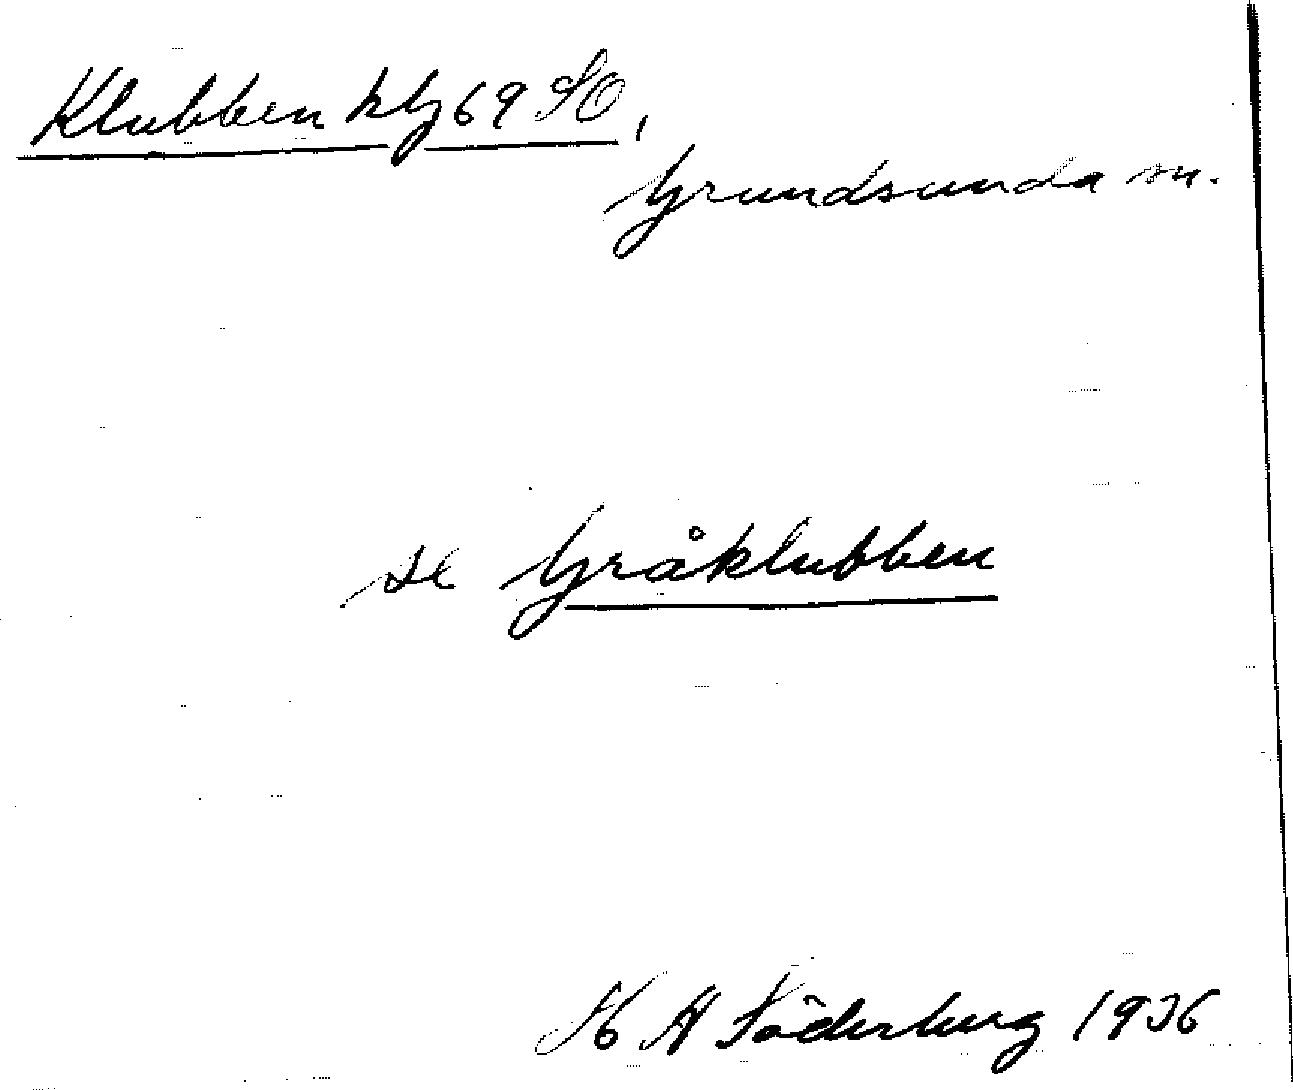 Klubben klg 69 SO,
Grundsunda sn.
se Gråklubben
K H Söderberg 1936